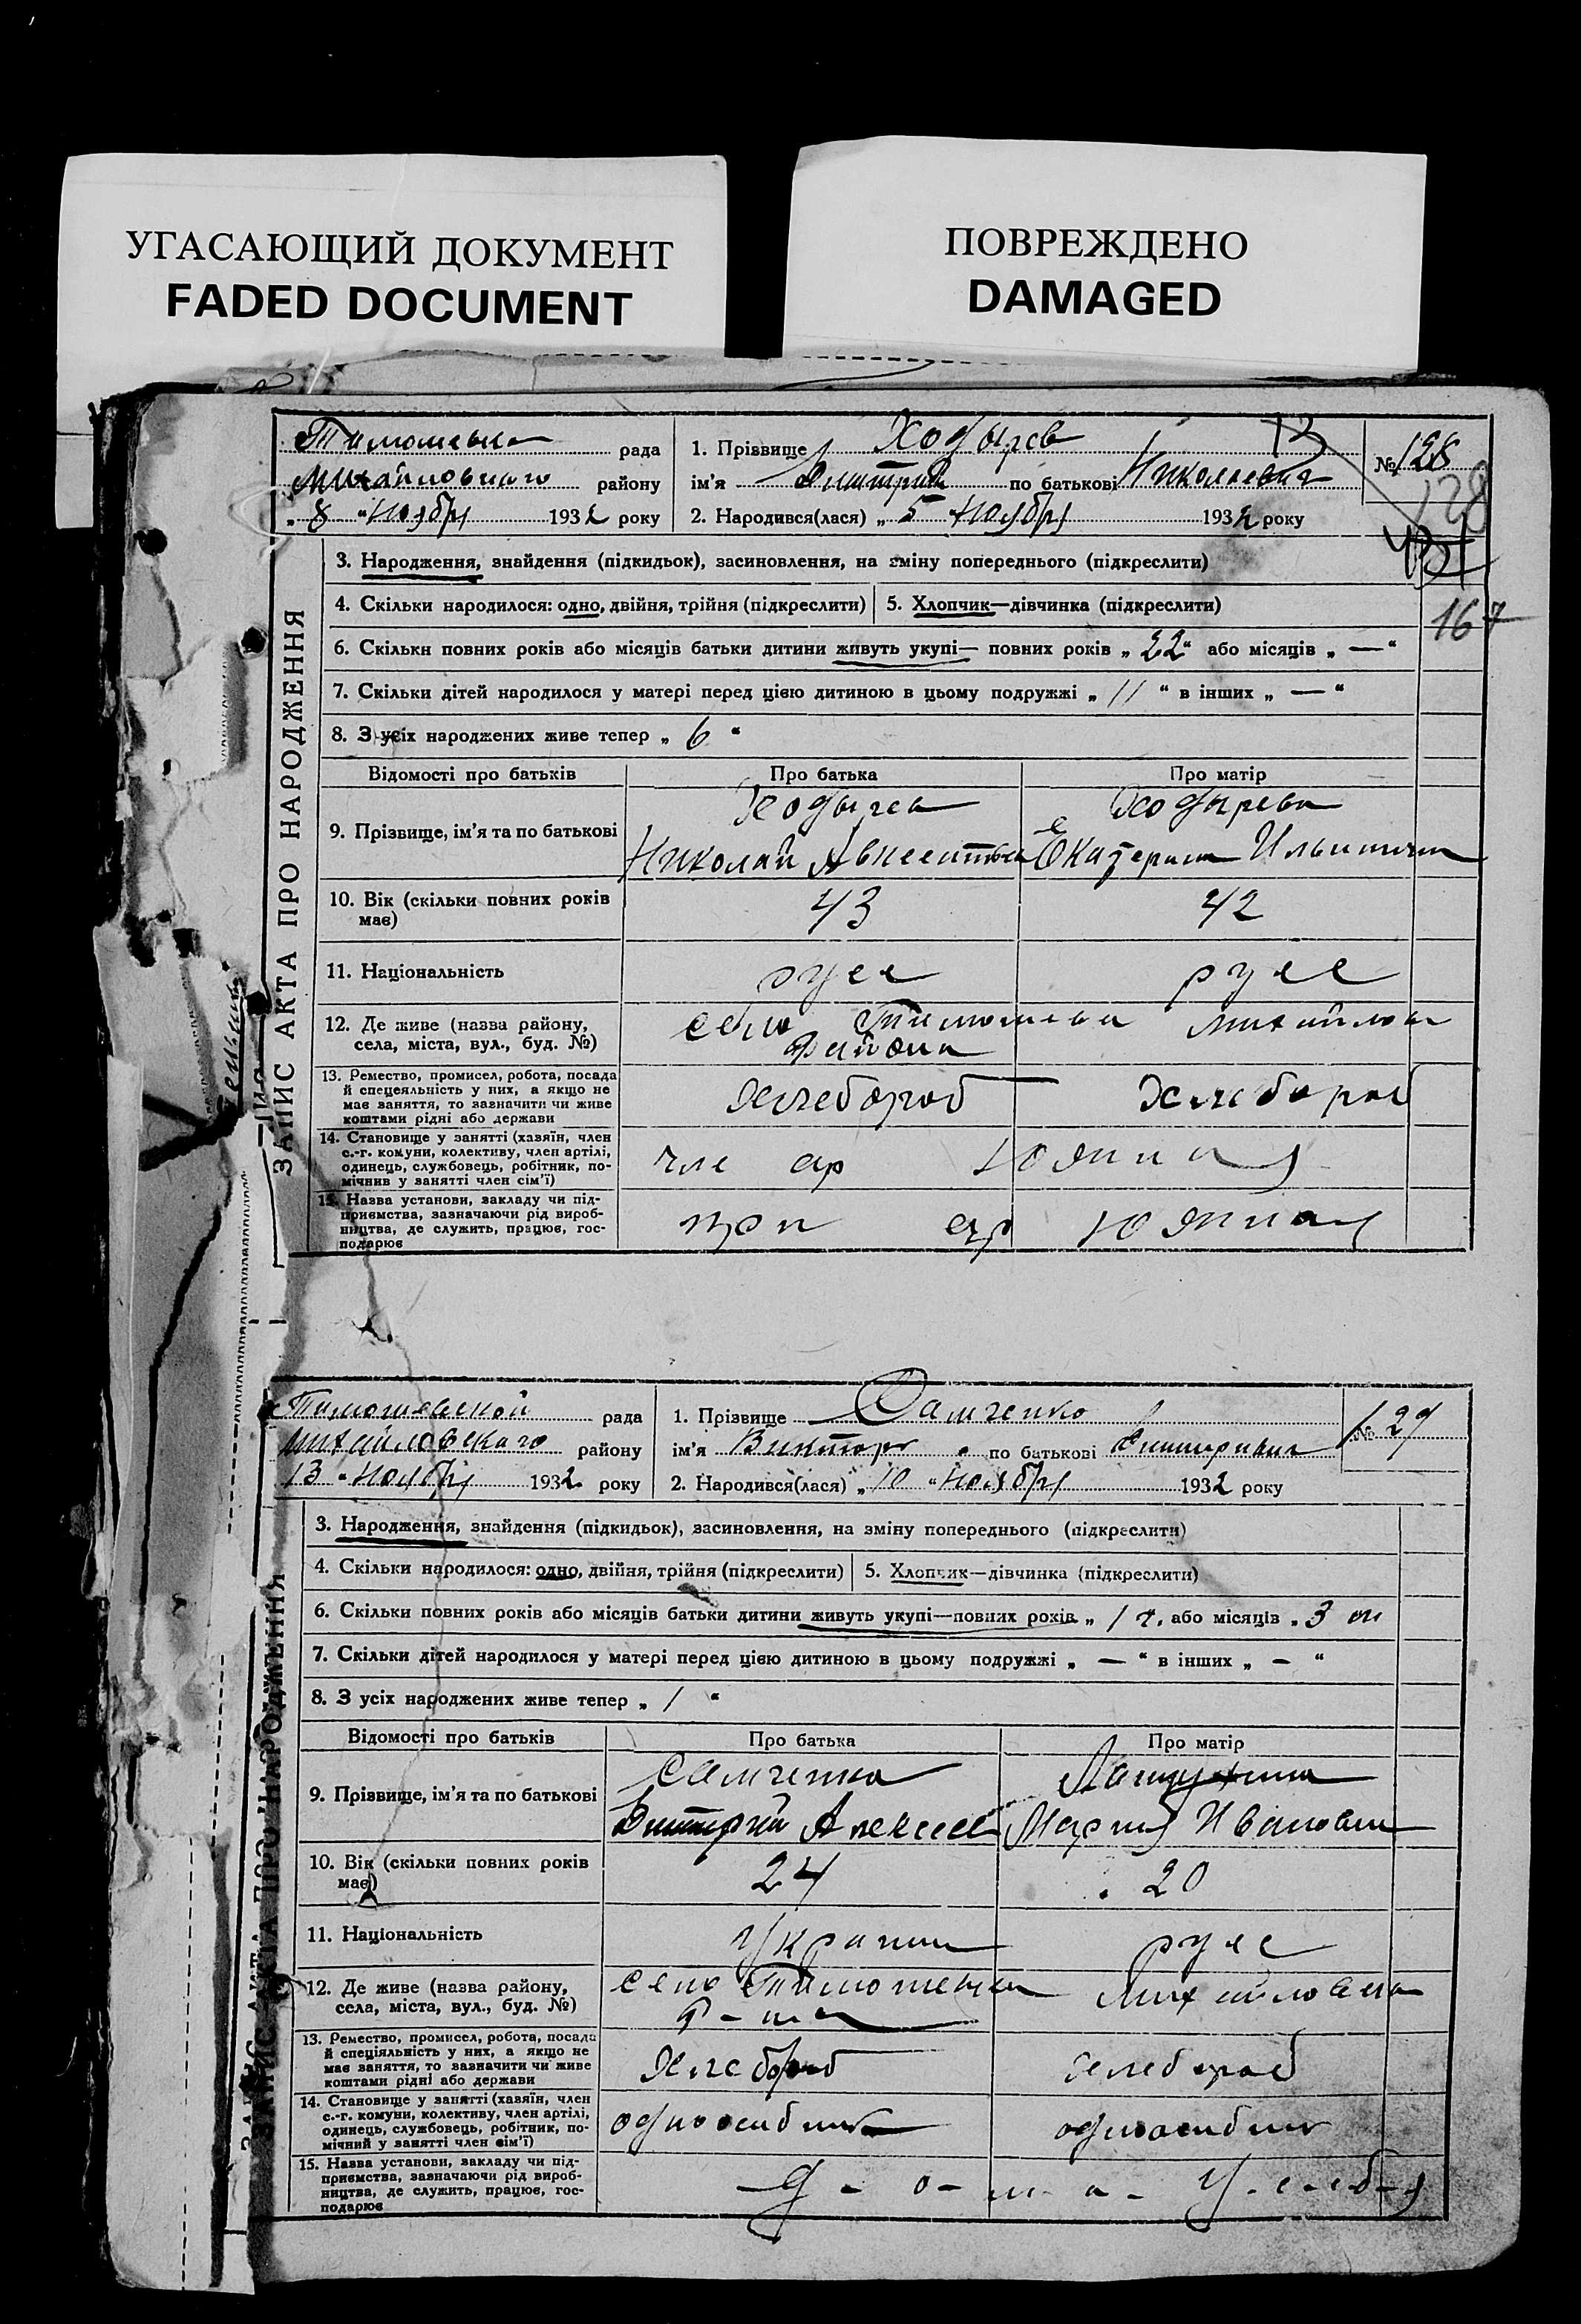 УГАСАЮЩИЙ ДОКУМЕНТ
FADED DOCUMENT
ПОВРЕЖДЕНО
DAMAGED
ЗАПИС АКТА ПРО НАРОДЖЕННЯ
рада
Михайловского району
„ 8 “ Ноября 1932 року
1. Прізвище Ходырев
ім'я Дмитрий по батькові Николаевич
2. Народився(лася) „ 5 “ Ноября 1932 року
№ 128
128
167
3. Народження, знайдення (підкидьок), засиновлення, на зміну попереднього (підкреслити)
4. Скільки народилося: одно, двійня, трійня (підкреслити)
5. Хлопчик—дівчинка (підкреслити)
6. Скільки повних років або місяців батьки дитини живуть укупі— повних років „ 22 “ або місяців „ — “
7. Скільки дітей народилося у матері перед цією дитиною в цьому подружжі „ 11 “ в інших „ — “
8. З усіх народжених живе тепер „ 6 “
Відомості про батьків
Про батька
Про матір
9. Прізвище, ім'я та по батькові
Ходырев
Николай
Ходырева
Екатерина Ильинична
10. Вік (скільки повних років має)
43
42
11. Національність
русс
русс
12. Де живе (назва району, села, міста, вул., буд. №)
село
района
13. Ремество, промисел, робота, посада
й спецеяльність у них, а якщо не
має заняття, то зазначити чи живе
коштами рідні або держави
Хлебороб
Хлебороб
14. Становище у занятті (хазяїн, член
с.-г. комуни, колективу, член артілі,
одинець, службовець, робітник, по-
мічнив у занятті член сім'ї)
чле ар
15. Назва установи, закладу чи під-
приємства, зазначаючи рід вироб-
ництва, де служить, працює, гос-
подарює
при ар
ЗАПИС АКТА ПРО НАРОДЖЕННЯ
Тимошевской рада
Михайловского району
13 “ Ноября 1932 року
1. Прізвище Самченко
ім'я Виктор по батькові Дмитриевич
2. Народився(лася) „ 10 “ Ноября 1932 року
№ 129
3. Народження, знайдення (підкидьок), засиновлення, на зміну попереднього (підкреслити)
4. Скільки народилося: одно, двійня, трійня (підкреслити)
5. Хлопчик—дівчинка (підкреслити)
6. Скільки повних років або місяців батьки дитини живуть укупі—повних років „ 1 г. або місяців „ 3 м
7. Скільки дітей народилося у матері перед цією дитиною в цьому подружжі „ — “ в інших „ — “
8. З усіх народжених живе тепер „ 1 “
Відомості про батьків
Про батька
Про матір
9. Прізвище, ім'я та по батькові
Самченко
Дмитрий Алексеев
Мария Ивановна
10. Вік (скільки повних років має)
24
20
11. Національність
Украин
русс
12. Де живе (назва району, села, міста, вул., буд. №)
село
Р-на
13. Ремество, промисел, робота, посада
й спеціяльність у них, а якщо не
має заняття, то зазначити чи живе
коштами рідні або держави
Хлебороб
хлебороб
14. Становище у занятті (хазяїн, член
с.-г. комуни, колективу, член артілі,
одинець, службовець, робітник, по-
мічний у занятті член сім'ї)
одноосибник
одноосибник
15. Назва установи, закладу чи під-
приємства, зазначаючи рід вироб-
ництва, де служить, працює, гос-
подарює
д - о - м - а - У - с - е - б - я